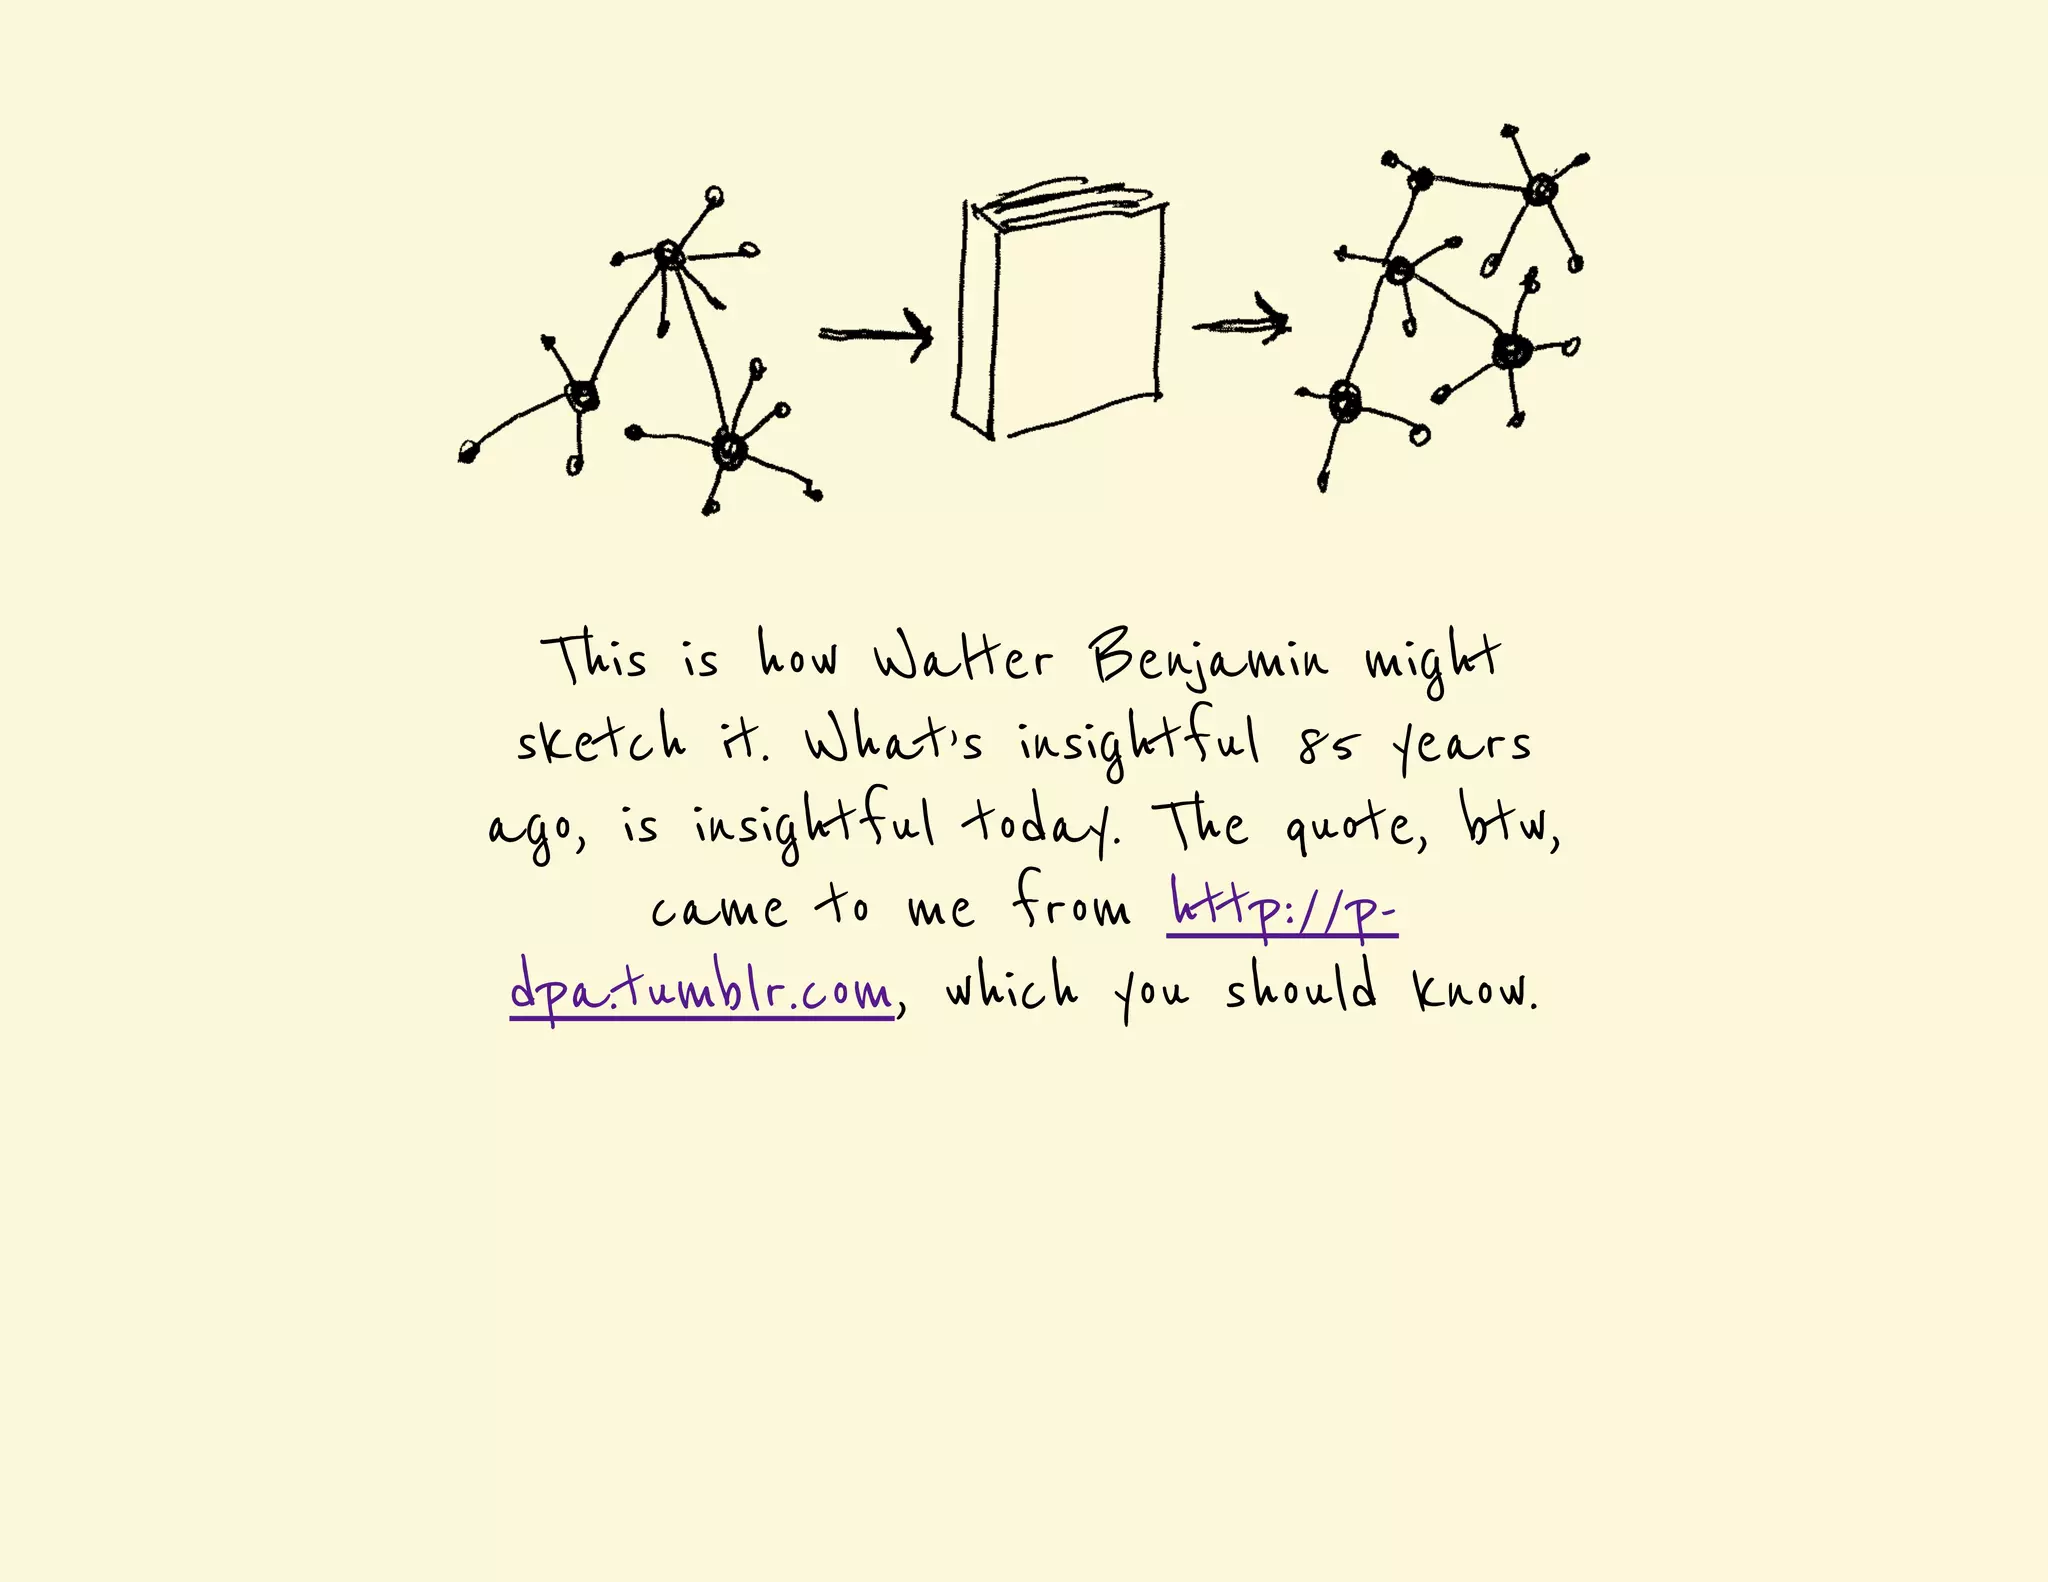 This is how Walter Benjamin might
sketch it. What's insightful 85 years
ago, is insightful today. The quote, btw,
came to me from http://p-
dpa.tumblr.com, which you should know.